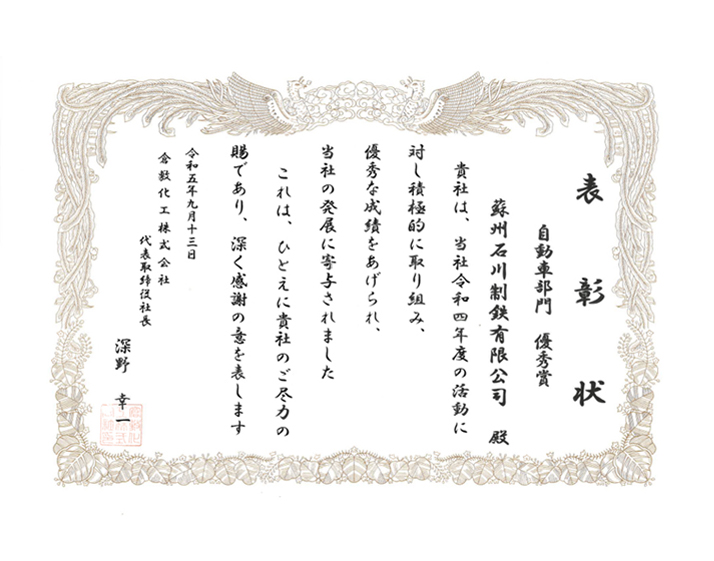 表彰状
自動車部門 優秀賞
蘇州石川制鉄有限公司 殿
貴社は、当社令和四年度の活動に
対し積極的に取り組み、
優秀な成績をあげられ、
当社の発展に寄与されました
これは、ひとえに貴社のご尽力の
賜であり、深く感謝の意を表します
令和五年九月十三日
倉敷化工株式会社
代表取締役社長
深野 幸一